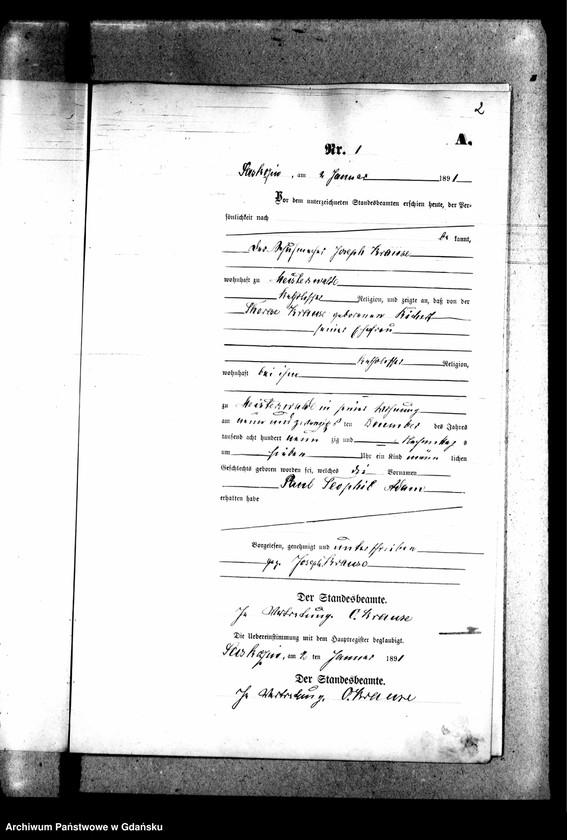 2
A.
Nr. 1
am 2 Januar 1891
Vor dem unterzeichneten Standesbeamten erschien heute, der Per-
sönlichkeit nach
be kannt,
der Schuhmacher Joseph Krause
wohnhaft zu Meisterwalde
katholischer Religion, und zeigte an, daß von der
Krause geborenen
seiner Ehefrau
katholischer Religion,
wohnhaft bei ihm
zu Meisterwalde in seiner Wohnung
am neun und zwanzigsten Dezember des Jahres
tausend acht hundert neun zig und Nachmittags
um sieben Uhr ein Kind männ lichen
Geschlechts geboren worden sei, welches die Vornamen
Paul Teophil Adam
erhalten habe
Vorgelesen, genehmigt und unterschrieben
gez. Joseph Krause
Der Standesbeamte.
In Vertretung. O. Krause
Die Uebereinstimmung mit dem Hauptregister beglaubigt.
am 2 ten Januar 1891
Der Standesbeamte.
In Vertretung. O. Krause
Archiwum Państwowe w Gdańsku